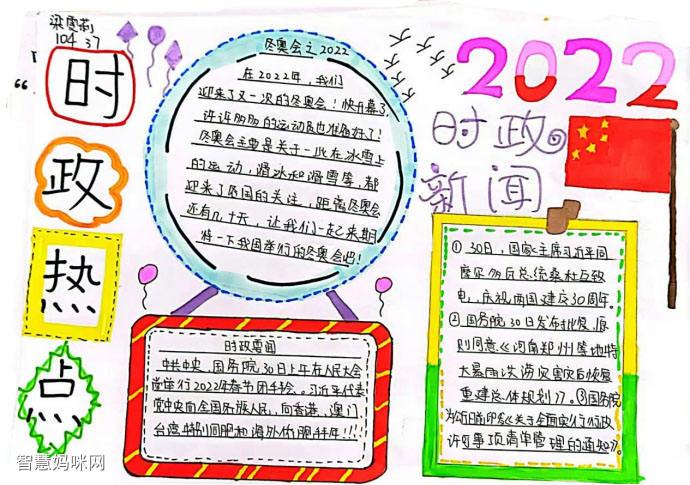 梁雯莉
104 37
时
政
热
点
冬奥会之2022
在2022年，我们
迎来了又一次的冬奥会！快开幕了，
许许多多的运动员也准备好了！
冬奥会主要是关于一些在冰雪上
的运动，滑冰和滑雪等，都
迎来了各国的关注，距离冬奥会
还有几十天，让我们一起来期
待一下我国举行的冬奥会吧！
时政要闻
中共中央、国务院30日上午在人民大会
堂举行2022年春节团拜会。习近平代表
党中央向全国各族人民，向香港、澳门、
台湾
同胞和海外侨胞拜年！！！
2022
时政
新闻
①30日，国家主席习近平同
摩尔多瓦总统桑杜互致
电，庆祝两国建交30周年。
②国务院30日发布批复，原
则同意《河南郑州等地特
大暴雨洪涝灾害灾后恢复
重建总体规划》。③国务院
办公厅日前印发《关于全面实行行政
许可事项清单管理的通知》。
智慧妈咪网